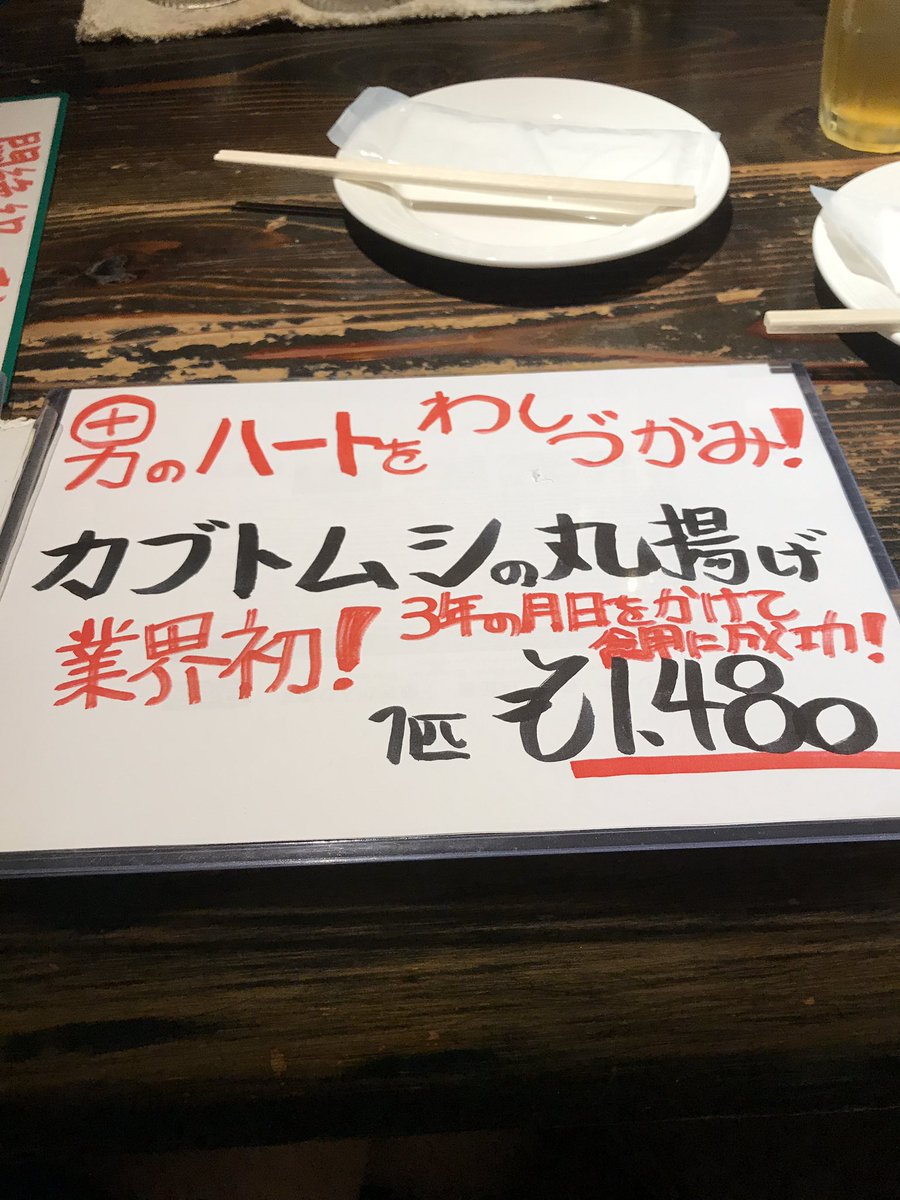 男のハートをわしづかみ!
カブトムシの丸揚げ
業界初!
3年の月日をかけて
食用に成功!
1匹 ¥1,480